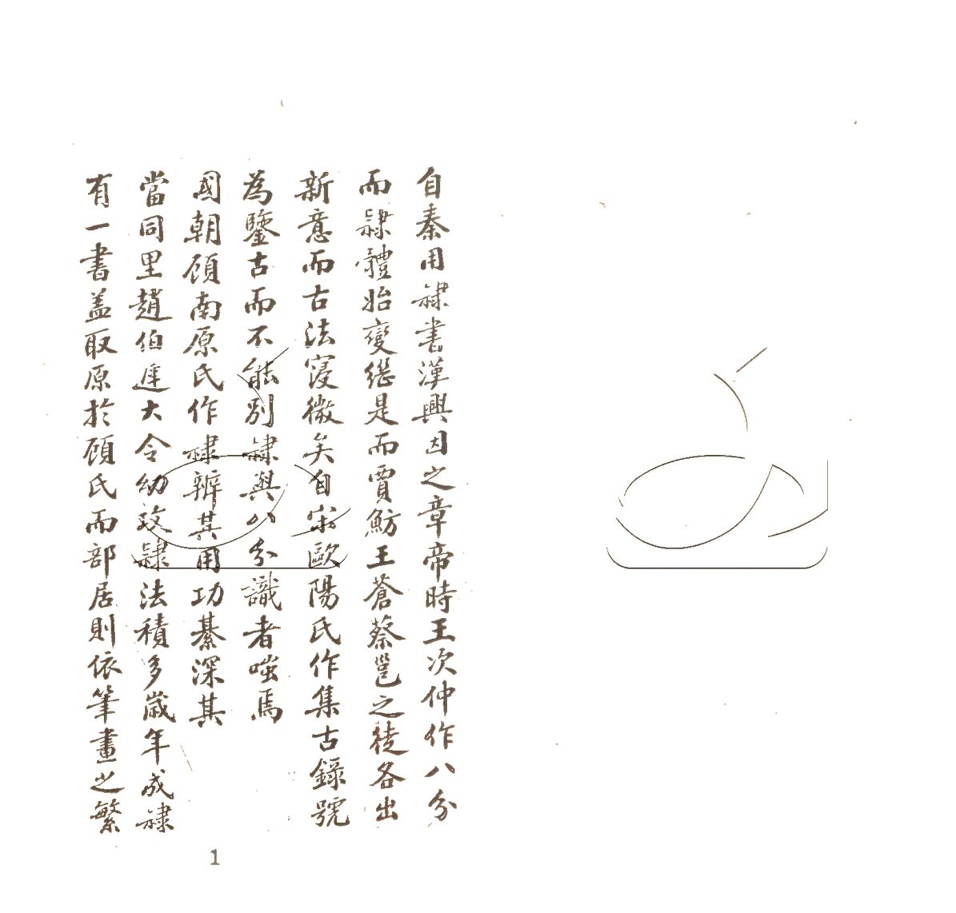 自秦用隷書漢興因之章帝時王次仲作八分
而隷體始變繼是而賈魴王蒼蔡邕之徒各出
新意而古法寖微矣自宋歐陽氏作集古錄號
為鑒古而不能別隷與八分識者嗤焉
國朝顧南原氏作隷辨其用功綦深其
當同里趙伯進大令幼攻隷法積多歲年成隷
有一書盖取原於顧氏而部居則依筆畫之繁
1